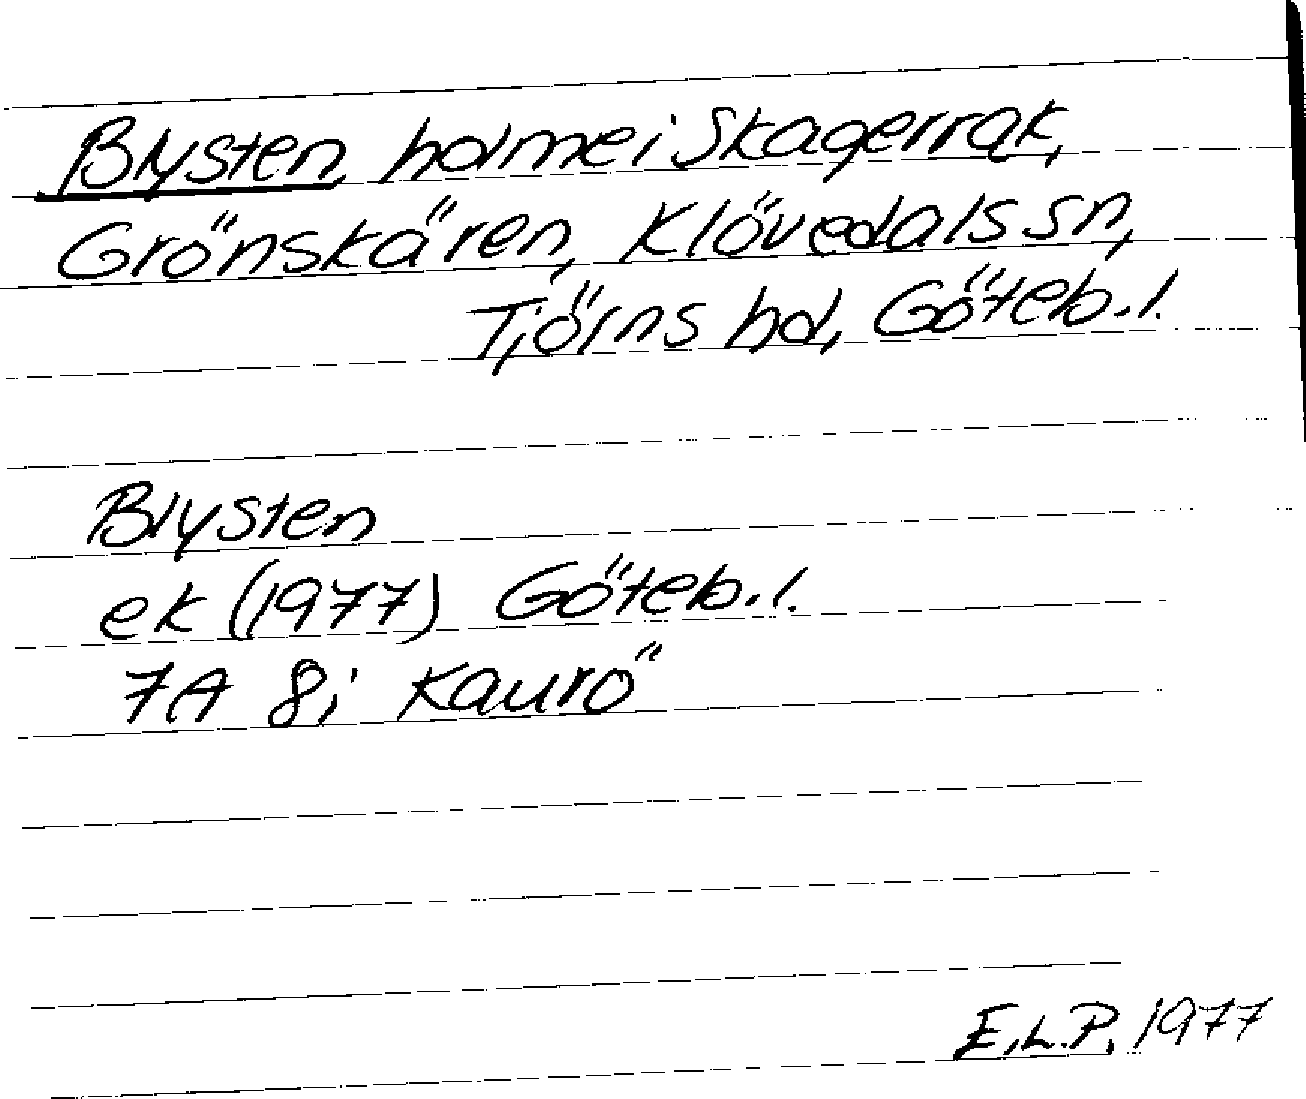 Blysten, holme i Skagerrak,
Grönskären, Klövedals sn,
Tjörns hd, Göteb. l.
Blysten
ek (1977) Göteb. l.
7A 8i Kaurö
E.L.P. 1977